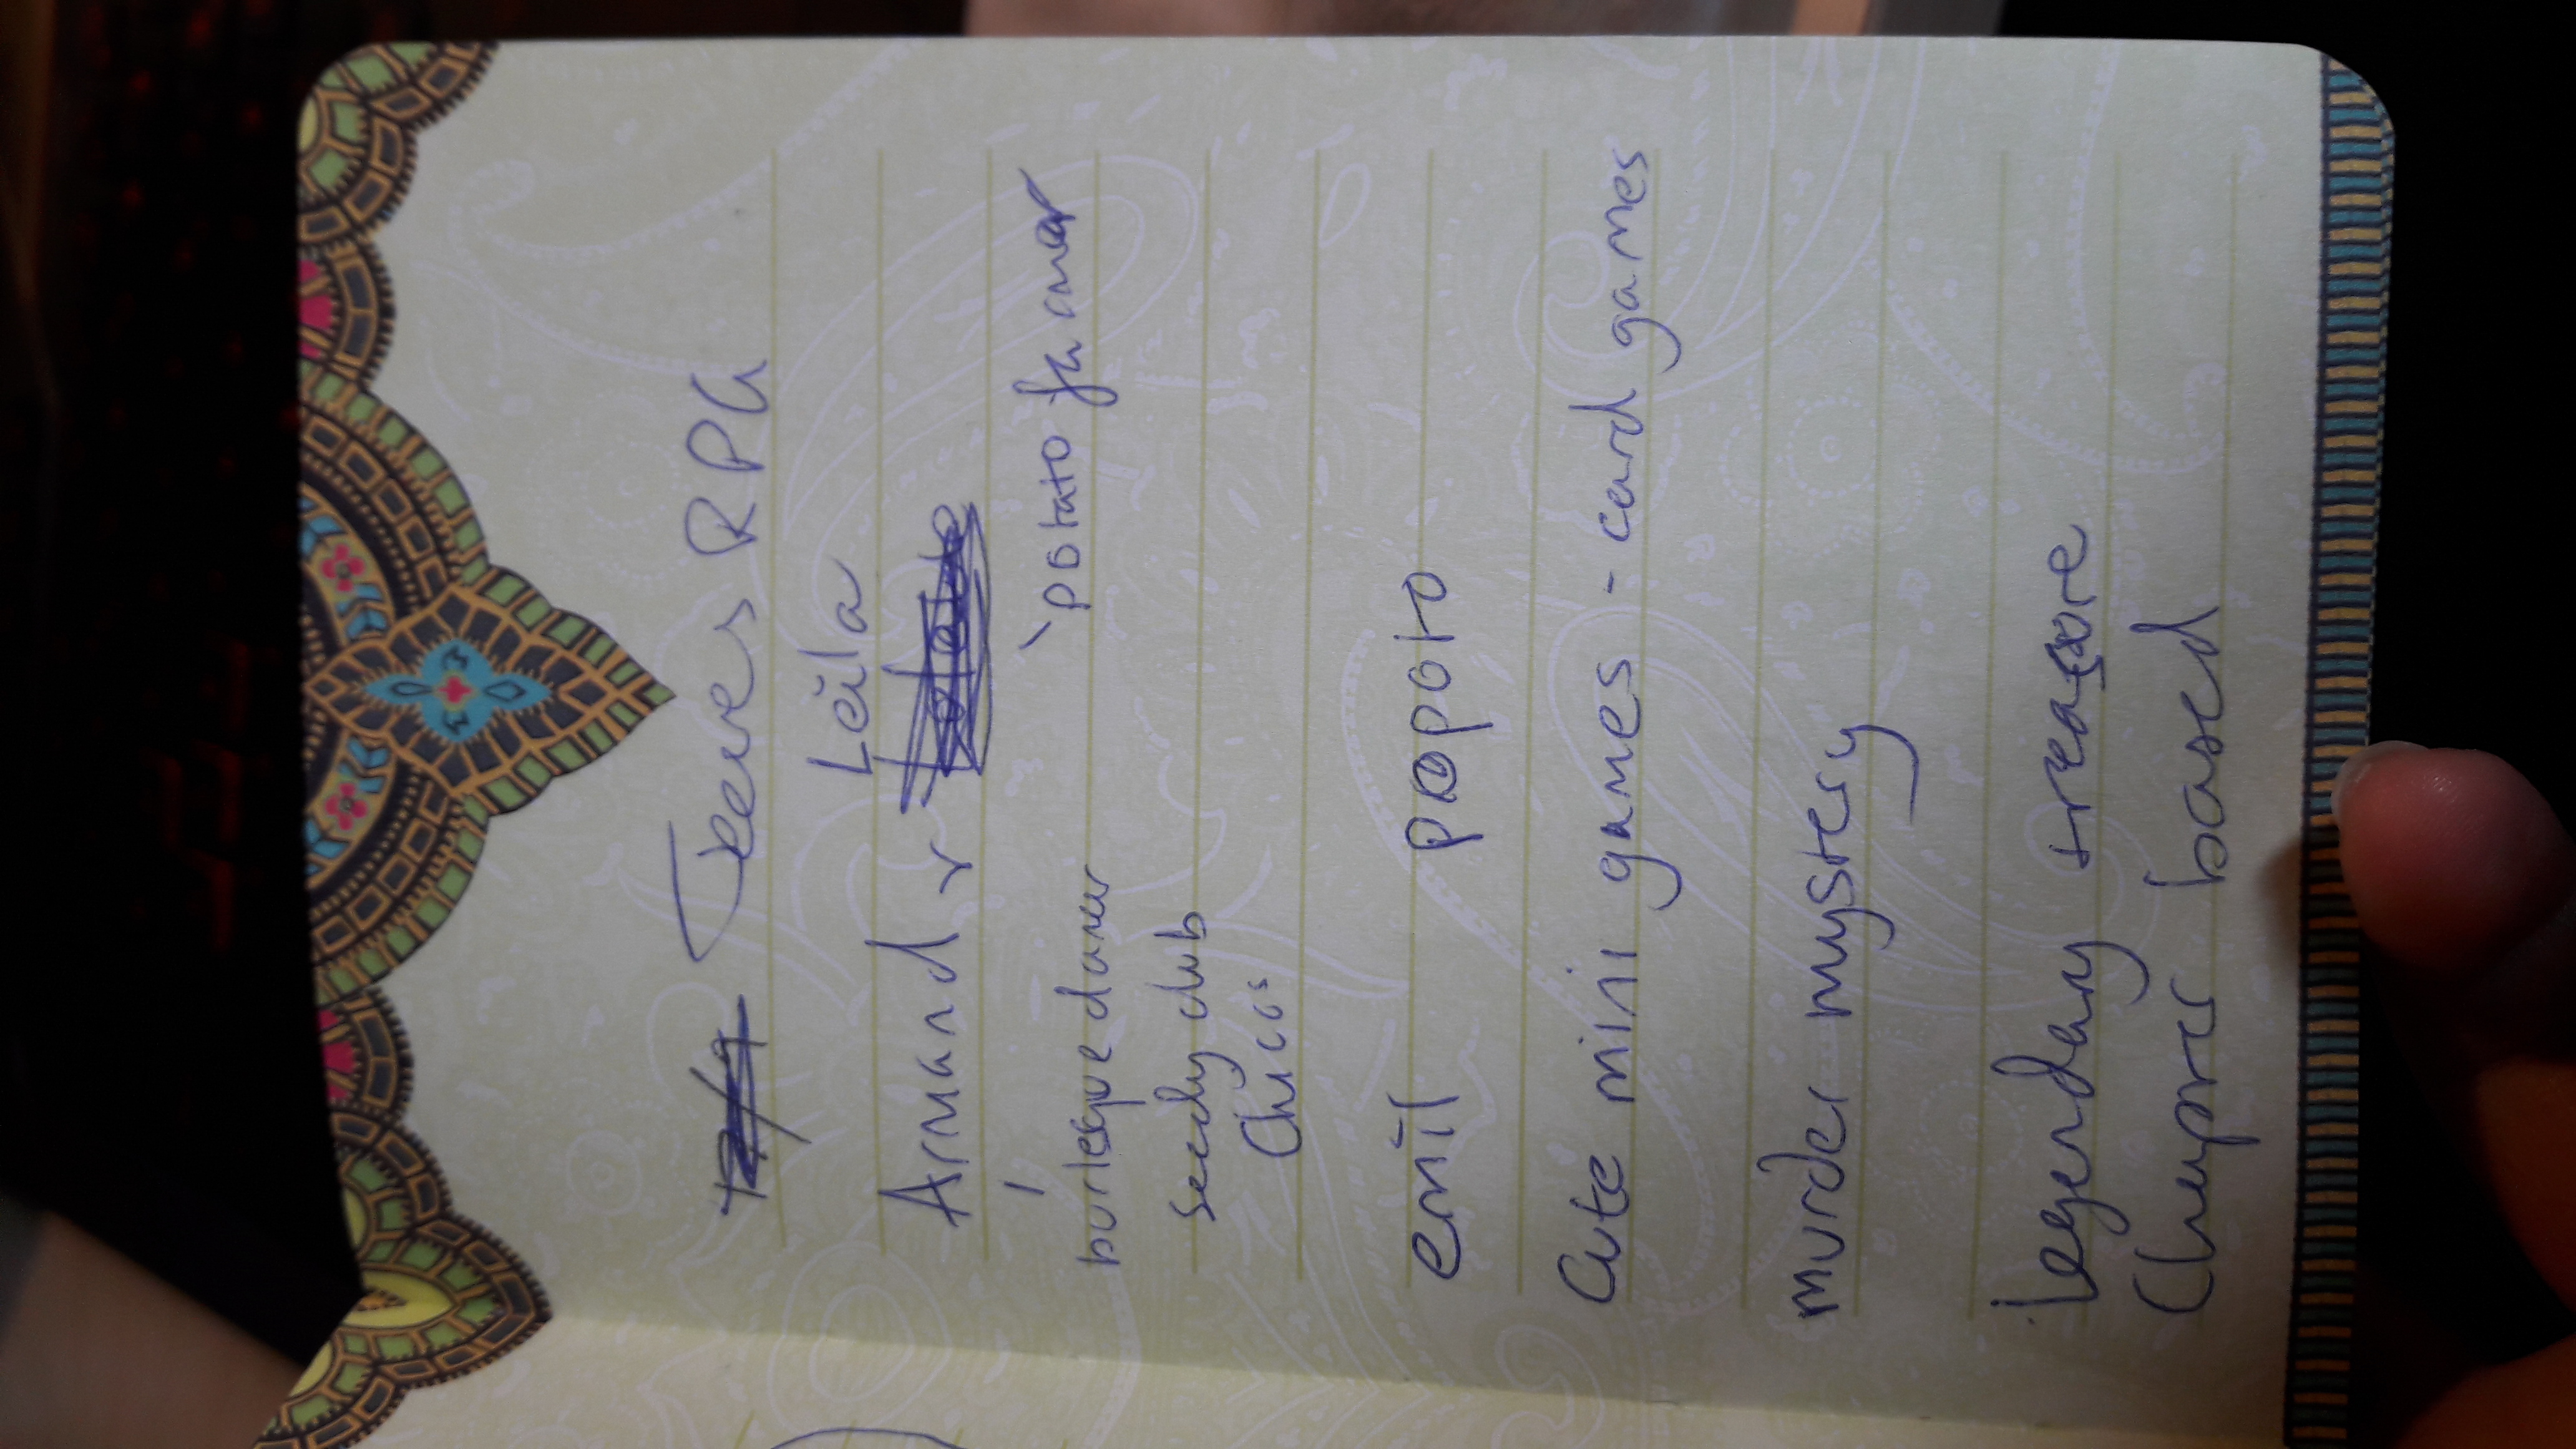 Jeeves RPG
Leila
Armand
burlesque dancer
potato farmer
seedy club
Chicos
emil popoto
Cute mini games - card games
murder mystery
legendary treasure
Chapter based